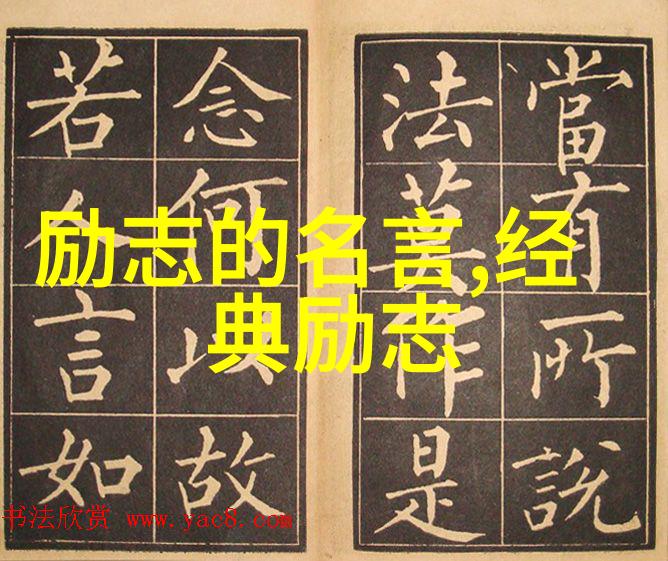 當有所說
法莫作是
念何以故
若人言如
励志的名言,经
典励志
书法欣赏 www.yac8.com